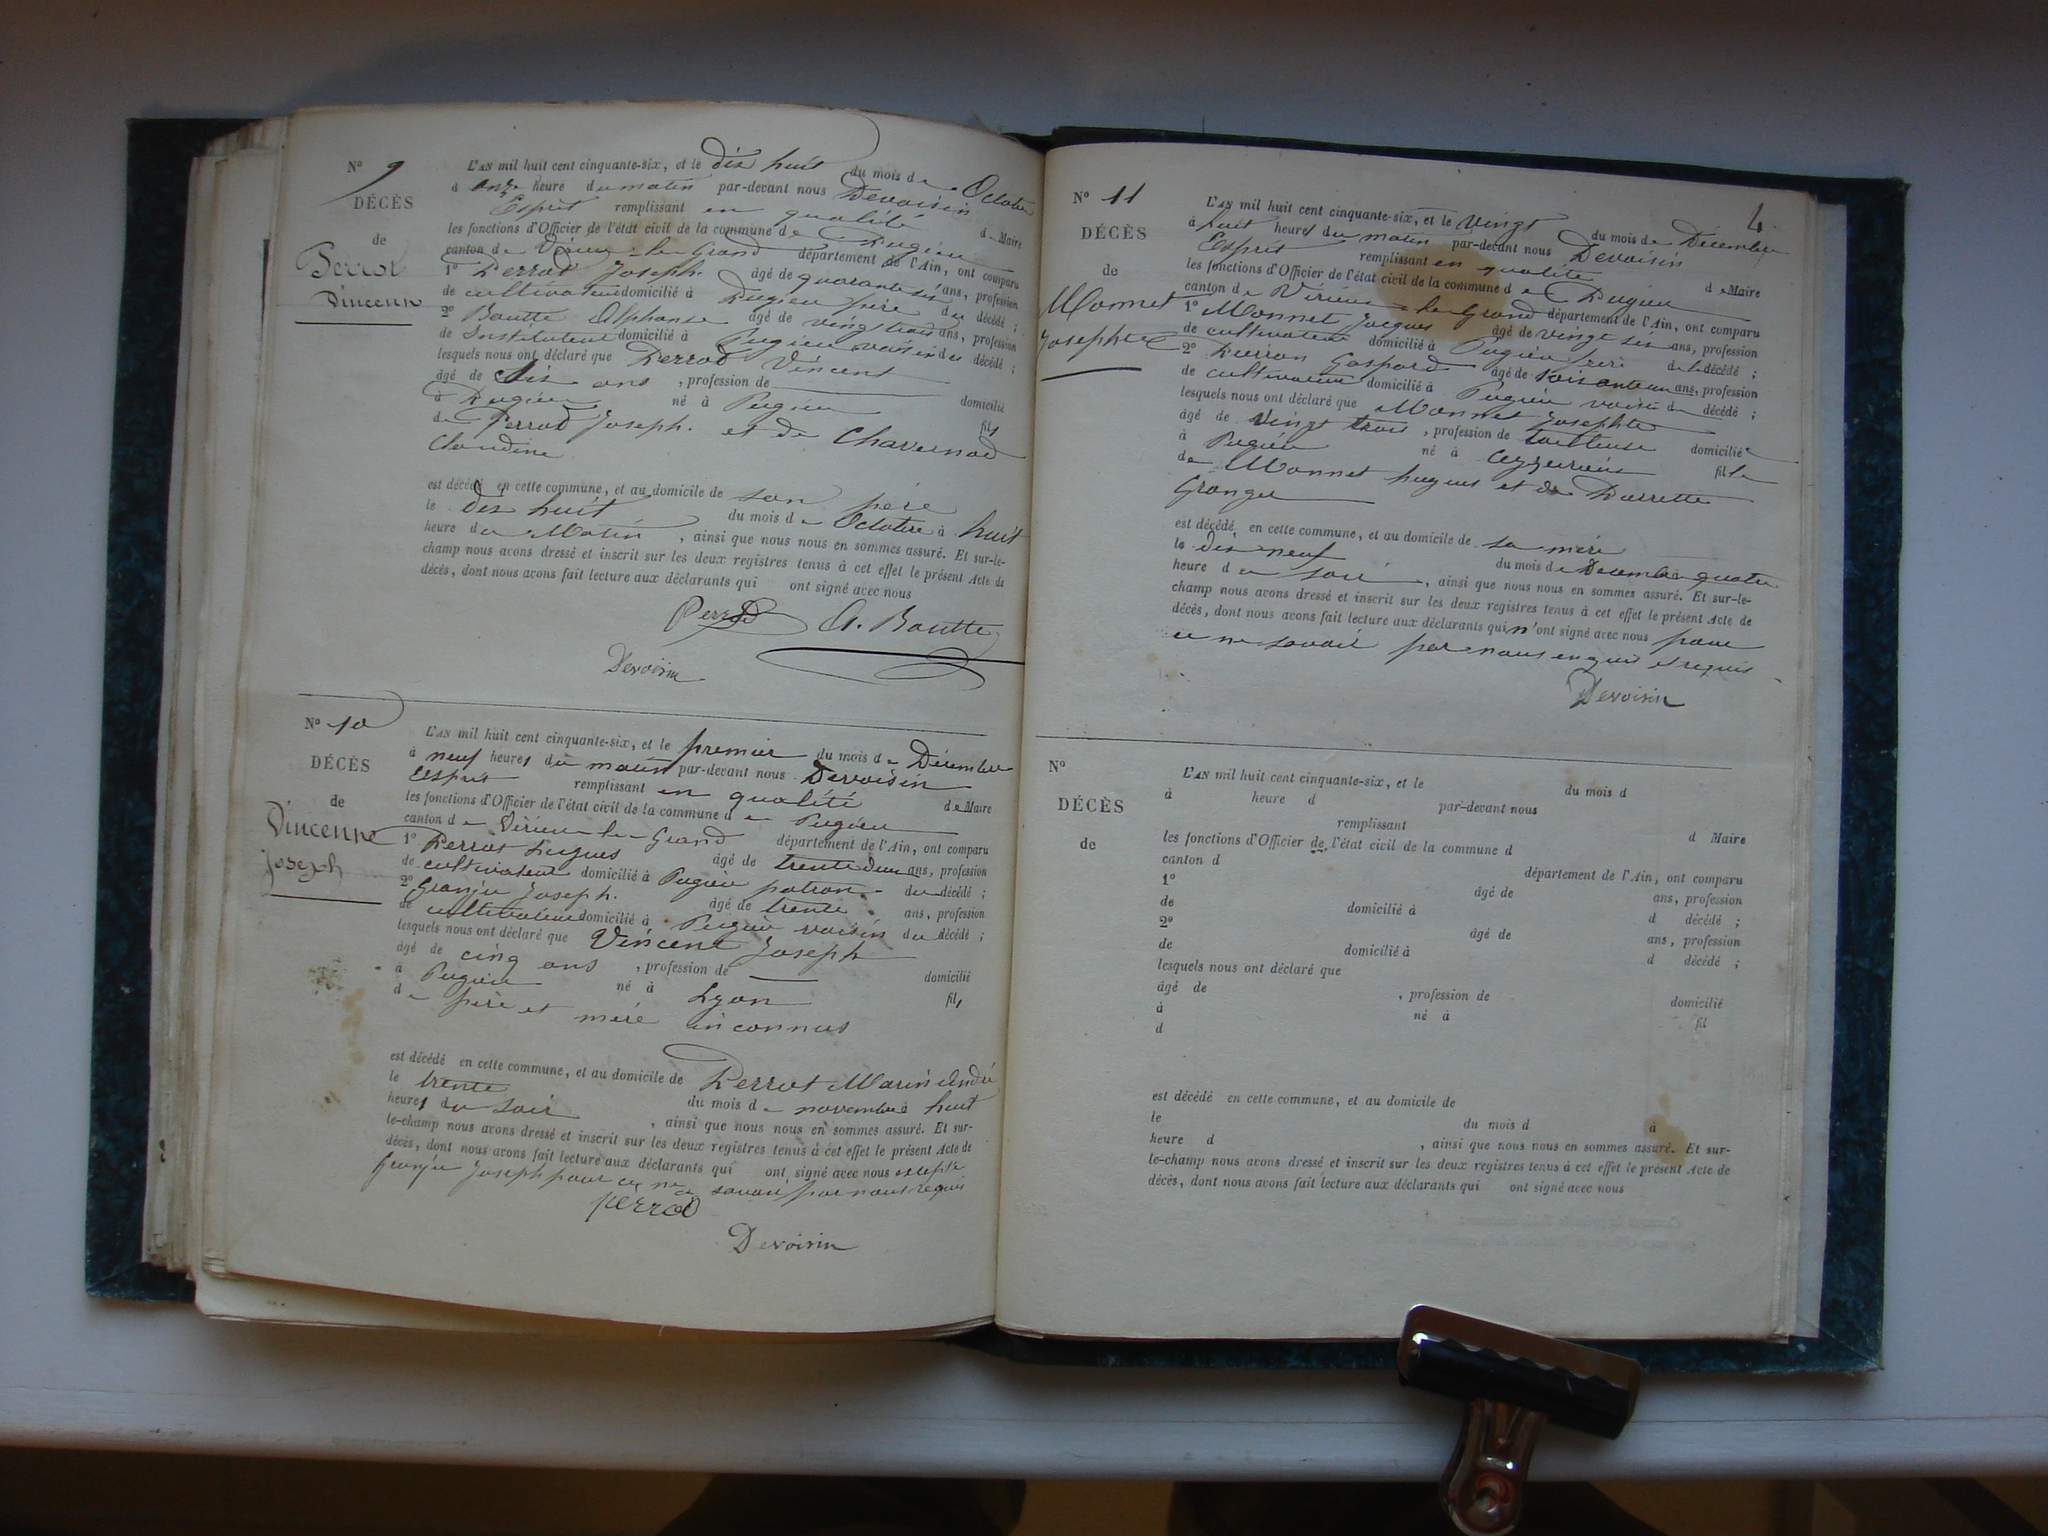 N° 9
DÉCÈS
de
Perrot
Vincent
L'AN mil huit cent cinquante-six, et le dix huit du mois de Octobre
à onze heure du matin par-devant nous Devoisin
Esprit remplissant en qualité de Maire
les fonctions d'Officier de l'état civil de la commune de Pugieu
canton de Virieu-le-Grand département de l'Ain, ont comparu
1° Perrod Joseph âgé de quarante six ans, profession
de cultivateur domicilié à Pugieu père du décédé ;
2° Boutte Alphonse âgé de vingt trois ans, profession
de Instituteur domicilié à Pugieu voisin du décédé ;
lesquels nous ont déclaré que Perrod Vincent
âgé de dix ans, profession de domicilié
à Pugieu né à Pugieu fils
de Perrod Joseph. et de Chavernod
Claudine
est décédé en cette commune, et au domicile de son père
le dix huit du mois de Octobre à huit
heure du Matin, ainsi que nous nous en sommes assuré. Et sur-le-
champ nous avons dressé et inscrit sur les deux registres tenus à cet effet le présent Acte de
décès, dont nous avons fait lecture aux déclarants qui ont signé avec nous
Perrod A. Boutte
Devoisin
N° 10
DÉCÈS
de
Vincenne
Joseph
L'AN mil huit cent cinquante-six, et le premier du mois de Décembre
à neuf heures du matin par-devant nous Devoisin
Esprit remplissant en qualité de Maire
les fonctions d'Officier de l'état civil de la commune de Pugieu
canton de Virieu-le-Grand département de l'Ain, ont comparu
1° Perrot Hugues âgé de trente deux ans, profession
de cultivateur domicilié à Pugieu patron du décédé ;
2° Granju Joseph. âgé de trente ans, profession
de cultivateur domicilié à Pugieu voisin du décédé ;
lesquels nous ont déclaré que Vincent Joseph
âgé de cinq ans, profession de domicilié
à Pugieu né à Lyon fils
de père et mère inconnus
est décédé en cette commune, et au domicile de Perrot Marin André
le trente du mois de novembre à huit
heures du soir, ainsi que nous nous en sommes assuré. Et sur-
le-champ nous avons dressé et inscrit sur les deux registres tenus à cet effet le présent Acte de
décès, dont nous avons fait lecture aux déclarants qui ont signé avec nous excepté
Granju Joseph pour ce ne savoir par nous requis
perrod
Devoisin
4
N° 11
DÉCÈS
de
Monnet
Josephte
L'AN mil huit cent cinquante-six, et le vingt du mois de Décembre
à huit heures du matin par-devant nous Devoisin
Esprit remplissant en qualité de Maire
les fonctions d'Officier de l'état civil de la commune de Pugieu
canton de Virieu-le-Grand département de l'Ain, ont comparu
1° Monnet Jacques âgé de vingt six ans, profession
de cultivateur domicilié à Pugieu frère de la décédé ;
2° Gaspard âgé de soixante un ans, profession
de cultivateur domicilié à Pugieu voisin du décédé ;
lesquels nous ont déclaré que Monnet Josephte
âgé de vingt trois, profession de tailleuse domiciliée
à Pugieu né à fille
de Monnet hugues et de Pierrette
Granger
est décédé en cette commune, et au domicile de sa mère
le dix neuf du mois de Décembre quatre
heure du soir, ainsi que nous nous en sommes assuré. Et sur-le-
champ nous avons dressé et inscrit sur les deux registres tenus à cet effet le présent Acte de
décès, dont nous avons fait lecture aux déclarants qui n'ont signé avec nous pour
ce ne savoir par nous enquis et requis
Devoisin
N°
DÉCÈS
de
L'AN mil huit cent cinquante-six, et le du mois d
à heure d par-devant nous
remplissant d Maire
les fonctions d'Officier de l'état civil de la commune d
canton d département de l'Ain, ont comparu
1° âgé de ans, profession
de domicilié à d décédé ;
2° âgé de ans, profession
de domicilié à d décédé ;
lesquels nous ont déclaré que
âgé de , profession de domicilié
à né à fil
d
est décédé en cette commune, et au domicile de
le du mois d à
heure d , ainsi que nous nous en sommes assuré. Et sur-
le-champ nous avons dressé et inscrit sur les deux registres tenus à cet effet le présent Acte de
décès, dont nous avons fait lecture aux déclarants qui ont signé avec nous